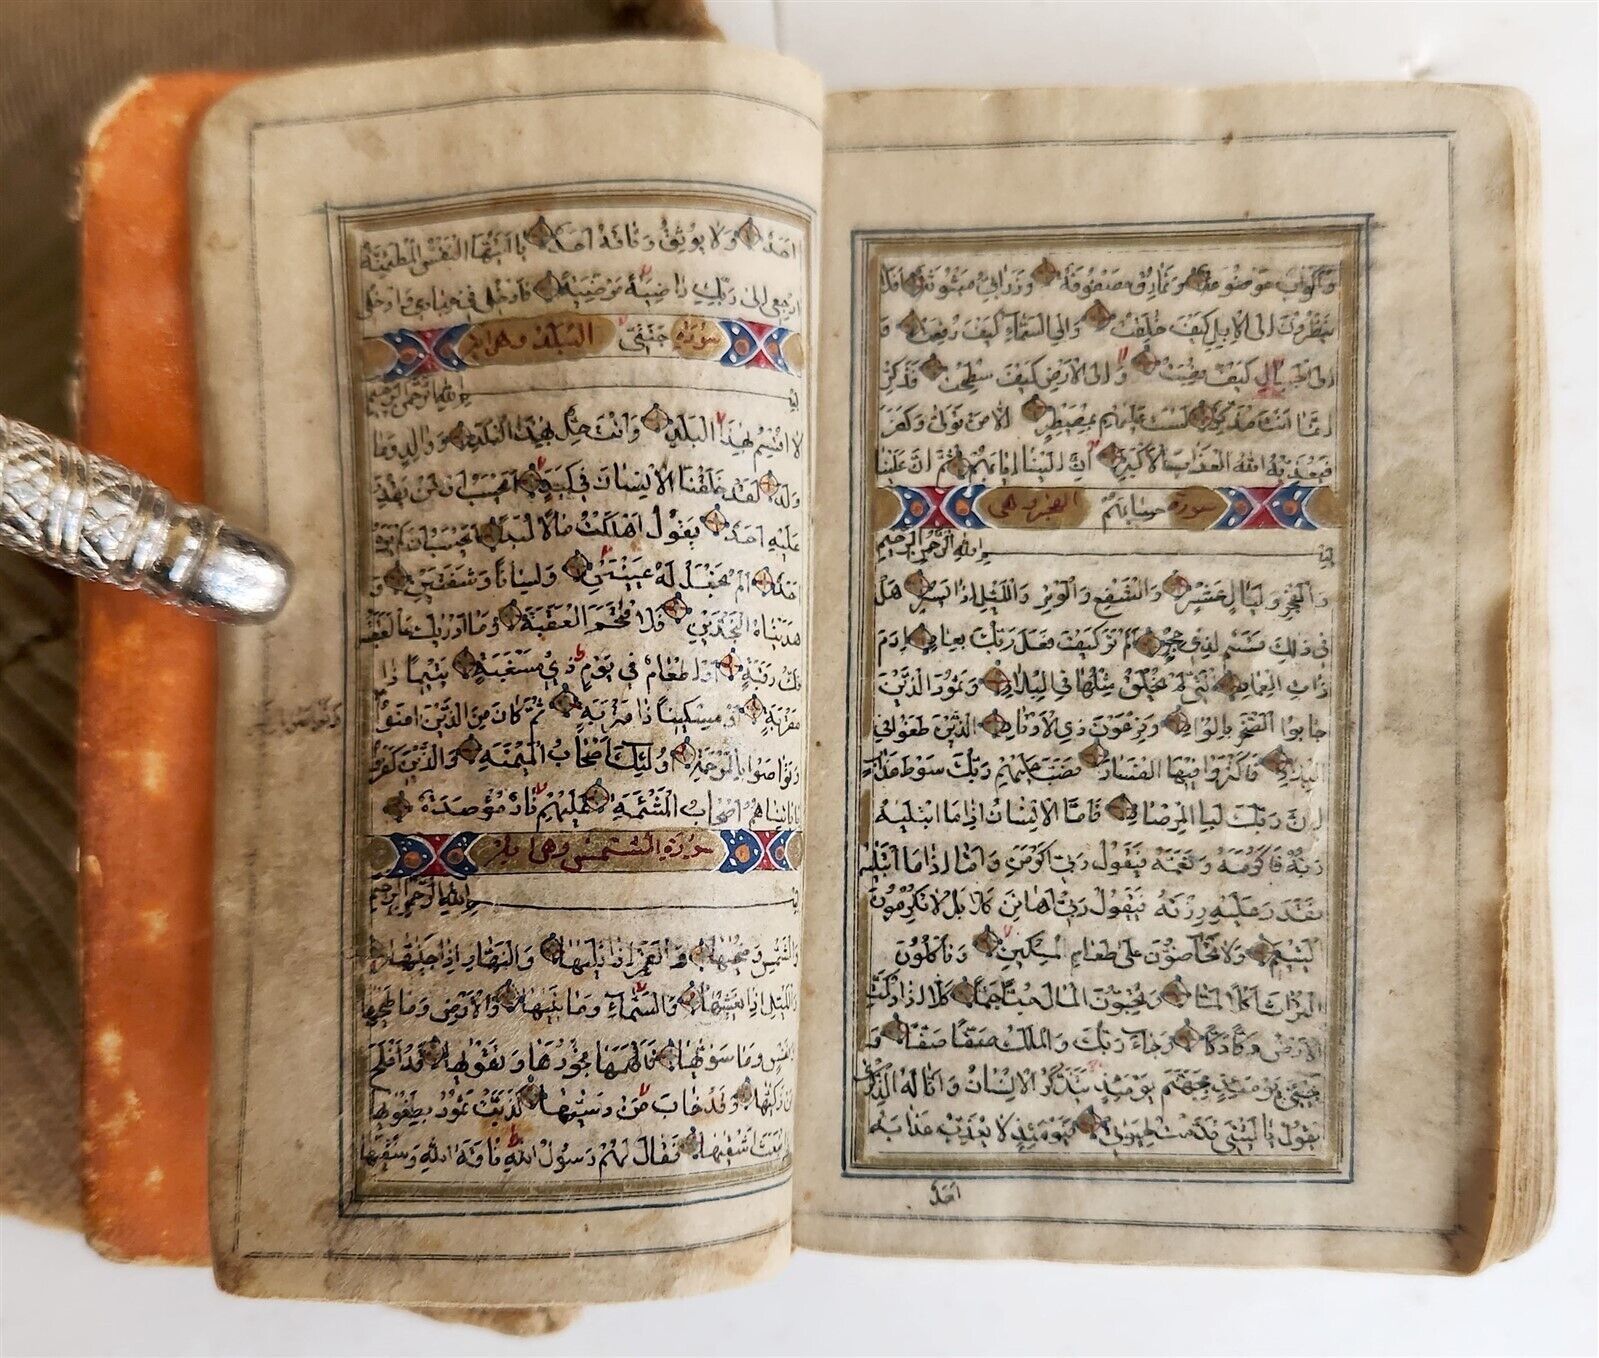 وَأَكْوَابٌ مَوْضُوعَةٌ وَنَمَارِقُ مَصْفُوفَةٌ وَزَرَابِيُّ مَبْثُوثَةٌ أَفَلَا
يَنْظُرُونَ إِلَى الْإِبِلِ كَيْفَ خُلِقَتْ وَإِلَى السَّمَاءِ كَيْفَ رُفِعَتْ وَ
إِلَى الْجِبَالِ كَيْفَ نُصِبَتْ وَإِلَى الْأَرْضِ كَيْفَ سُطِحَتْ فَذَكِّرْ
إِنَّمَا أَنْتَ مُذَكِّرٌ لَسْتَ عَلَيْهِمْ بِمُصَيْطِرٍ إِلَّا مَنْ تَوَلَّى وَكَفَرَ
فَيُعَذِّبُهُ اللَّهُ الْعَذَابَ الْأَكْبَرَ إِنَّ إِلَيْنَا إِيَابَهُمْ ثُمَّ إِنَّ عَلَيْنَا
سورة حسابهم الفجر وهى
اية الله الرحمن الرحيم
وَالْفَجْرِ وَلَيَالٍ عَشْرٍ وَالشَّفْعِ وَالْوَتْرِ وَاللَّيْلِ إِذَا يَسْرِ هَلْ
فِي ذَلِكَ قَسَمٌ لِذِي حِجْرٍ أَلَمْ تَرَ كَيْفَ فَعَلَ رَبُّكَ بِعَادٍ إِرَمَ
ذَاتِ الْعِمَادِ الَّتِي لَمْ يُخْلَقْ مِثْلُهَا فِي الْبِلَادِ وَثَمُودَ الَّذِينَ
جَابُوا الصَّخْرَ بِالْوَادِ وَفِرْعَوْنَ ذِي الْأَوْتَادِ الَّذِينَ طَغَوْا فِي
الْبِلَادِ فَأَكْثَرُوا فِيهَا الْفَسَادَ فَصَبَّ عَلَيْهِمْ رَبُّكَ سَوْطَ عَذَابٍ
إِنَّ رَبَّكَ لَبِالْمِرْصَادِ فَأَمَّا الْإِنْسَانُ إِذَا مَا ابْتَلَيهُ
رَبُّهُ فَأَكْرَمَهُ وَنَعَّمَهُ فَيَقُولُ رَبِّي أَكْرَمَنِ وَأَمَّا إِذَا مَا ابْتَلَيهُ
فَقَدَرَ عَلَيْهِ رِزْقَهُ فَيَقُولُ رَبِّي أَهَانَنِ كَلَّا بَلْ لَا تُكْرِمُونَ
الْيَتِيمَ وَلَا تَحَاضُّونَ عَلَى طَعَامِ الْمِسْكِينِ وَتَأْكُلُونَ
التُّرَاثَ أَكْلًا لَمًّا وَتُحِبُّونَ الْمَالَ حُبًّا جَمًّا كَلَّا إِذَا دُكَّتِ
الْأَرْضُ دَكًّا دَكًّا وَجَاءَ رَبُّكَ وَالْمَلَكُ صَفًّا صَفًّا وَ
جِيءَ يَوْمَئِذٍ بِجَهَنَّمَ يَوْمَئِذٍ يَتَذَكَّرُ الْإِنْسَانُ وَأَنَّى لَهُ الذِّكْرَى
يَقُولُ يَا لَيْتَنِي قَدَّمْتُ لِحَيَاتِي فَيَوْمَئِذٍ لَا يُعَذِّبُ عَذَابَهُ
أَحَدٌ
أَحَدٌ وَلَا يُوثِقُ وَثَاقَهُ أَحَدٌ يَا أَيَّتُهَا النَّفْسُ الْمُطْمَئِنَّةُ
ارْجِعِي إِلَى رَبِّكِ رَاضِيَةً مَرْضِيَّةً فَادْخُلِي فِي عِبَادِي وَادْخُلِي
سورة جَنَّتِي البلد وهى
اية الله الرحمن الرحيم
لَا أُقْسِمُ بِهَذَا الْبَلَدِ وَأَنْتَ حِلٌّ بِهَذَا الْبَلَدِ وَوَالِدٍ وَمَا
وَلَدَ لَقَدْ خَلَقْنَا الْإِنْسَانَ فِي كَبَدٍ أَيَحْسَبُ أَنْ لَنْ يَقْدِرَ
عَلَيْهِ أَحَدٌ يَقُولُ أَهْلَكْتُ مَالًا لُبَدًا أَيَحْسَبُ أَنْ لَمْ يَرَهُ
أَحَدٌ أَلَمْ نَجْعَلْ لَهُ عَيْنَيْنِ وَلِسَانًا وَشَفَتَيْنِ وَ
هَدَيْنَاهُ النَّجْدَيْنِ فَلَا اقْتَحَمَ الْعَقَبَةَ وَمَا أَدْرَيكَ مَا الْعَقَبَةُ
فَكُّ رَقَبَةٍ أَوْ إِطْعَامٌ فِي يَوْمٍ ذِي مَسْغَبَةٍ يَتِيمًا ذَا
مَقْرَبَةٍ أَوْ مِسْكِينًا ذَا مَتْرَبَةٍ ثُمَّ كَانَ مِنَ الَّذِينَ آمَنُوا
وَتَوَاصَوْا بِالْمَرْحَمَةِ أُولَئِكَ أَصْحَابُ الْمَيْمَنَةِ وَالَّذِينَ كَفَرُوا
بِآيَاتِنَا هُمْ أَصْحَابُ الْمَشْئَمَةِ عَلَيْهِمْ نَارٌ مُؤْصَدَةٌ
سورة الشمس وهى
اية الله الرحمن الرحيم
وَالشَّمْسِ وَضُحَيهَا وَالْقَمَرِ إِذَا تَلَيهَا وَالنَّهَارِ إِذَا جَلَّيهَا
وَاللَّيْلِ إِذَا يَغْشَيهَا وَالسَّمَاءِ وَمَا بَنَيهَا وَالْأَرْضِ وَمَا طَحَيهَا
وَنَفْسٍ وَمَا سَوَّيهَا فَأَلْهَمَهَا فُجُورَهَا وَتَقْوَيهَا قَدْ أَفْلَحَ
مَنْ زَكَّيهَا وَقَدْ خَابَ مَنْ دَسَّيهَا كَذَّبَتْ ثَمُودُ بِطَغْوَيهَا
إِذِ انْبَعَثَ أَشْقَيهَا فَقَالَ لَهُمْ رَسُولُ اللَّهِ نَاقَةَ اللَّهِ وَسُقْيَيهَا